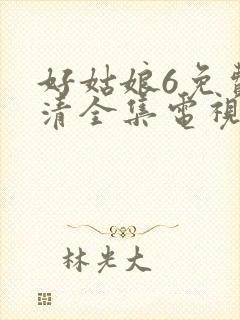 好姑娘6免費
清全集電視
林光大